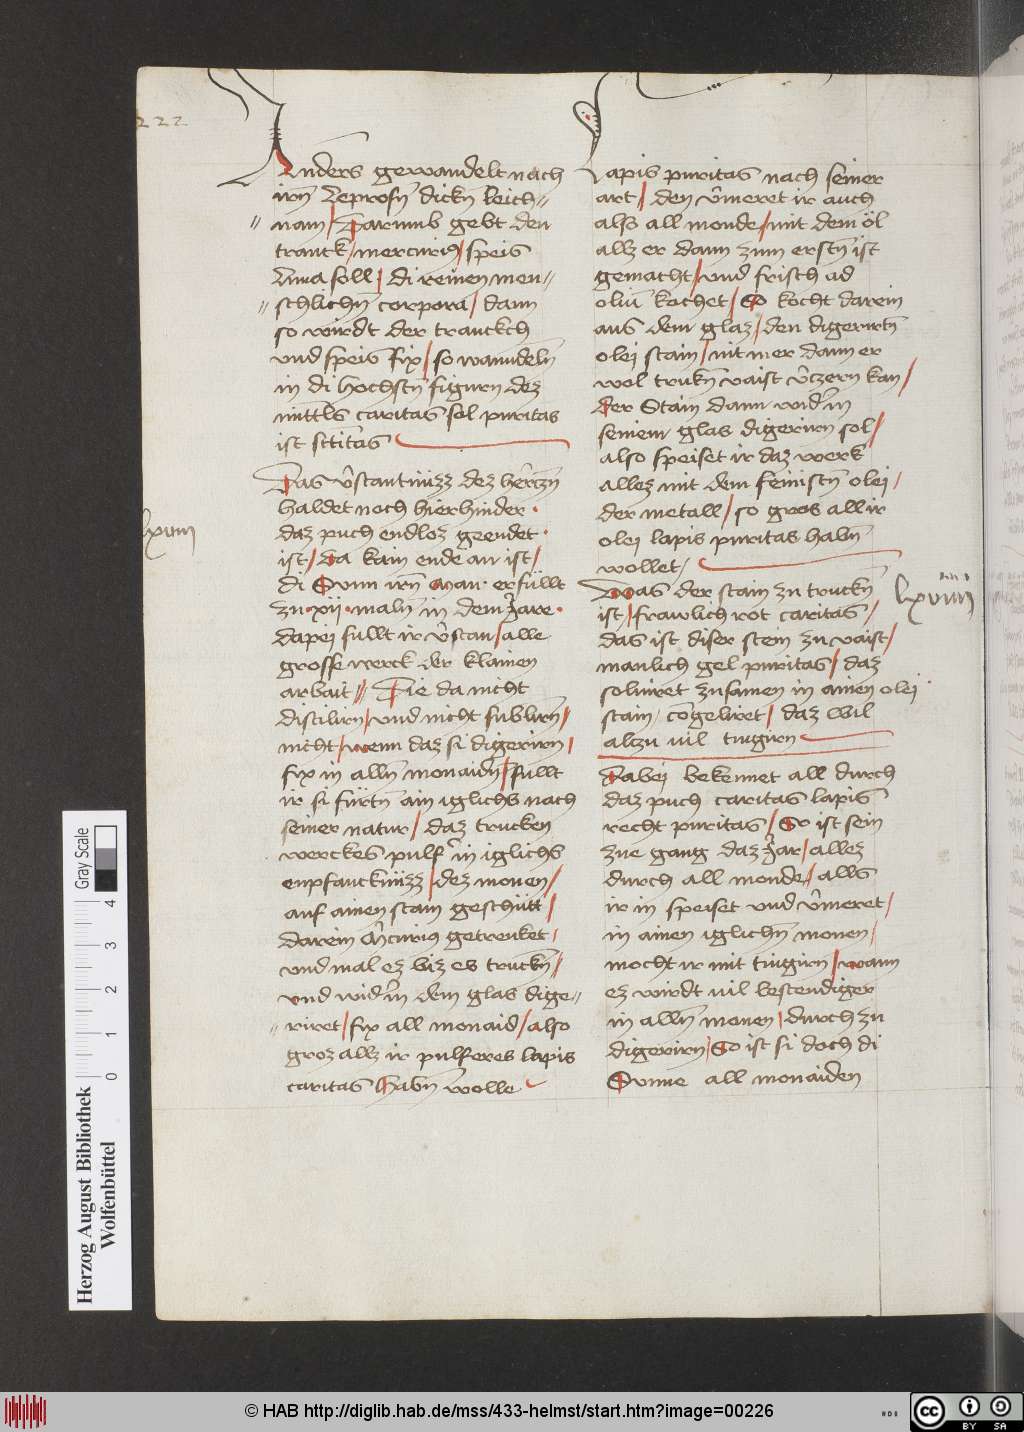 222
Anders gewandelt nach
irn̄ Leprosn̄ dickn̄ leich=
nam / Darumb gebt den
tranck / mercurium / speis
Luna soll / di reinen men=
schlichn̄ corpora / dann
so wirdt der tranckch
vnd speis fix / so wanndeln̄
in di hochstn̄ figurn dez
mittls caritas sol puritas
ist
Das v̂stantnüzz dez
haldet noch hierhinder
daz puch endloz geendet
ist / Da kain ende an ist /
di Sunn irn̄ man erfüllt
zu xii maln̄ in dem Jare
dapeÿ fullt ir v̂stan / alle
grosse werck der klainen
arbait // Die da nicht
distilirn / vnd nicht sublirn̄ /
nicht / wenn daz si digerirn /
fix in alln̄ monaidn̄ / fullt
ir si fürtn̄ ain iglichs nach
seiner natur / daz trucken
werckes pulf̉ in iglichs
enpfancknüzz / dez monen /
auf ainen stain geschütt /
darein M̂curium getrenket
vnd mal ez biz es truckn̄ /
vnd wid̉in dem glas dige=
riret / fix all monaid / also
groz allz ir pulferes lapis
caritas habn̄ wolle
lxviii
Lapis puritas nach seiner
art / den v̂meret ir auch
also all monde / mit dem öl
allz er dann zum erstn̄ ist
gemacht / vnd frisch ad
oliū kochet / So kocht darein
aus dem glaz / den digerirtn̄
olei stain / nit mer dann er
wol trukn̄ vaist v̂czern kan /
der Stain dann wid̉in
seinem glas digerirn sol /
also speiset ir daz werk
allez mit dem feinistn̄ olei /
der metall / so gros all ir
olei lapis puritas habn̄
wollet /
Was der stain zu truckn̄
ist / frawlich rot caritas /
das ist diser stein zu vaist /
manlich gel puritas / daz
soluiret zusamen in ainen olei
stain / cōgeliret / daz wil
alzu uil tingirn
lxviiii
Dabeÿ bekennet all durch
daz puch caritas lapis
recht puritas / Er ist sein
zue gang daz Jar / allez
durch all monde / alls
ir in speiset vnd v̂meret /
in ainen iglichn̄ monen /
mocht ir mit tingirn / wann
ez wirdt uil bestendiger
in alln̄ monen / durch zu
digerirn / So ist si doch di
Sunne all monaiden
Gray Scale
0 1 2 3 4
Herzog August Bibliothek
Wolfenbüttel
© HAB http://diglib.hab.de/mss/433-helmst/start.htm?image=00226
cc BY SA